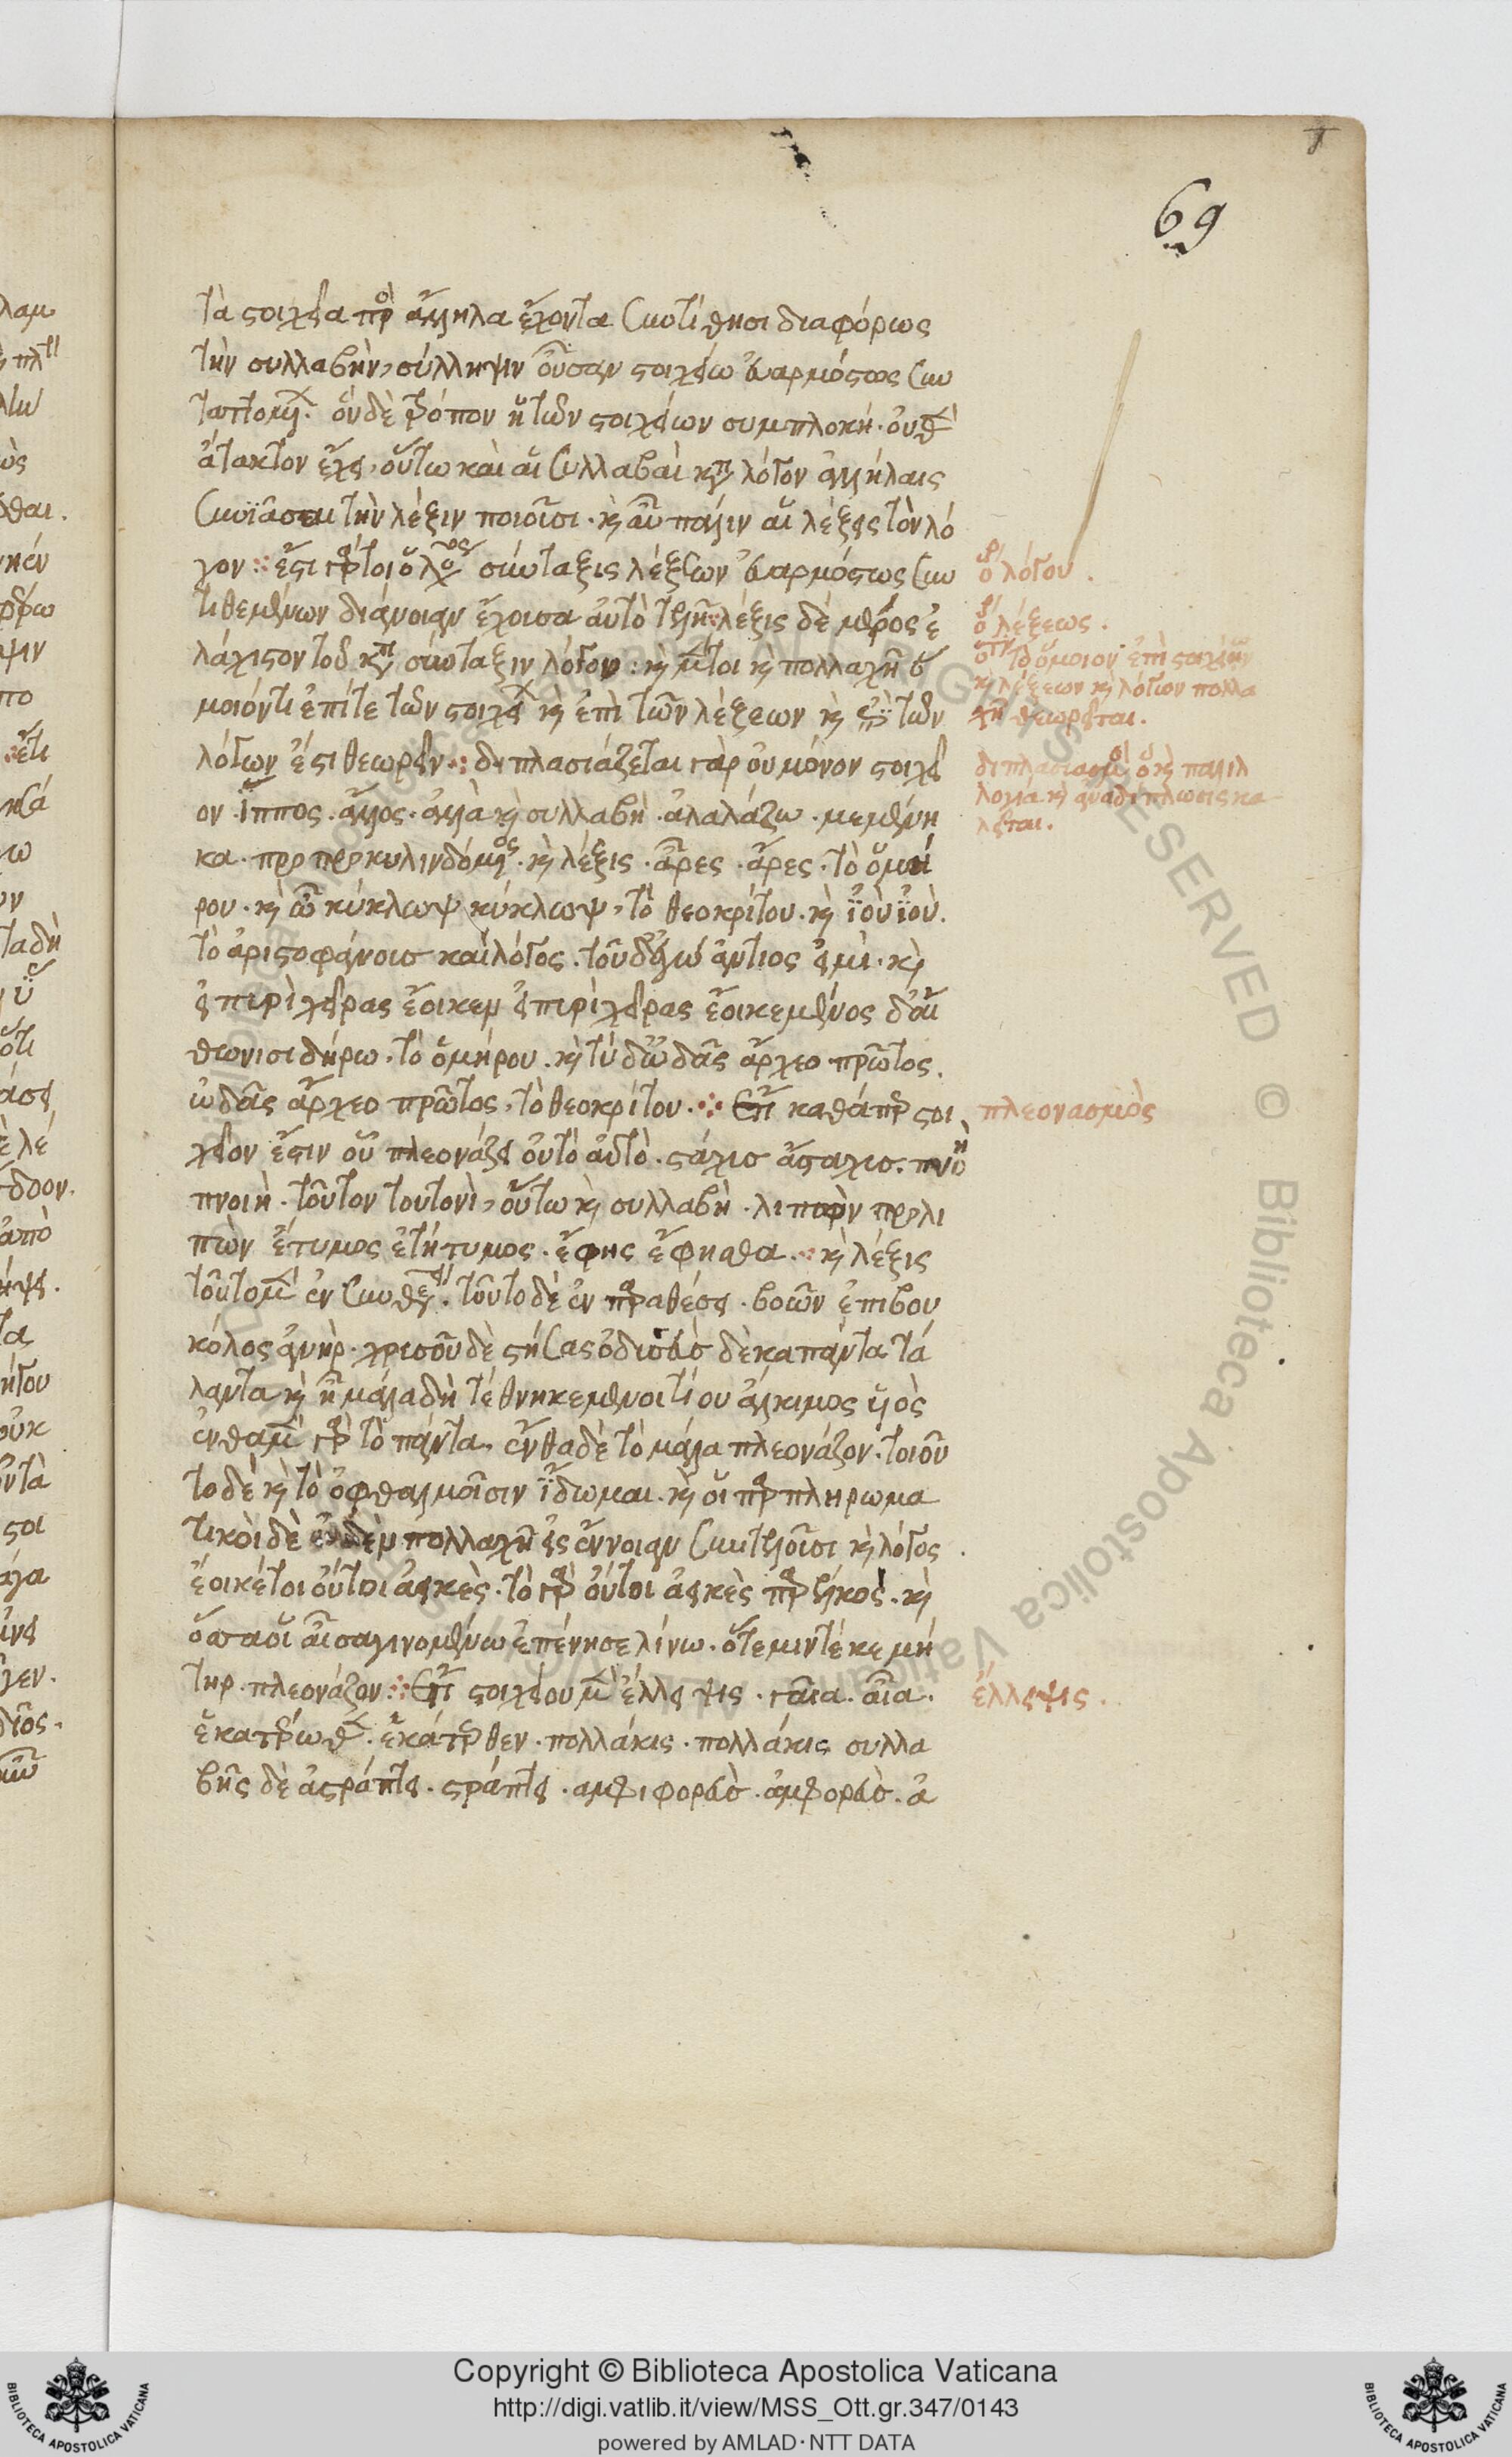 69
τὰ στοιχεῖα πρὸς ἄλληλα ἔχοντα συντίθησι διαφόρως
τὴν συλλαβὴν, σύλληψιν οὖσαν στοιχείων ἐναρμόστως συν
ταττομένων. ὃν δὲ τρόπον ἡ τῶν στοιχείων συμπλοκὴ οὐδὲν
ἄτακτον ἔχει, οὕτω καὶ αἱ συλλαβαὶ κατὰ λόγον ἀλλήλαις
συνϊᾶσαι τὴν λέξιν ποιοῦσι. καὶ αὖ πάλιν αἱ λέξεις τὸν λό
γον ἔστι γάρ τοι ὁ λόγος σύνταξις λέξεων ἐναρμόστως συν
τιθεμένων διάνοιαν ἔχουσα αὐτοτελῆ λέξις δὲ μέρος ἐ
λάχιστον τοῦ κατὰ σύνταξιν λόγου: καὶ μέντοι καὶ πολλαχῆ ὅ
μοιόν τι ἐπί τε τῶν στοιχείων καὶ ἐπὶ τῶν λέξεων καὶ ἐπὶ τῶν
λόγων ἔστι θεωρεῖν διπλασιάζεται γὰρ οὐ μόνον στοιχεῖ
ον ἵππος. ἄλλος. ἀλλὰ καὶ συλλαβὴ. ἀλαλάζω. μεμένη
κα. προπροκυλινδόμενος. καὶ λέξις. ἆρες. ἄρες. τὸ ὁμή
ρου. καὶ ὦ κύκλωψ κύκλωψ, τὸ θεοκρίτου. καὶ ἰοὺ ἰού.
τὸ ἀριστοφάνους καὶ λόγος. τοῦ δ' ἐγὼ ἀντίος εἶμι. καὶ
εἰ πυρὶ χεῖρας ἔοικεν εἰ πυρὶ χεῖρας ἔοικε μένος δ' αἴ
θωνι σιδήρω. τὸ ὁμήρου. καὶ τὺ δ' ὠδᾶς ἄρχεο πρᾶτος.
ὠδᾶς ἄρχεο πρῶτος, τὸ θεοκρίτου. Ἔτι καθάπερ στοι
χεῖον ἔστιν οὗ πλεονάζει οὐτὸ αὐτὸ. στάχυς ἄσταχυς. πνοὴ
πνοιὴ. τοῦτον τουτονὶ, οὕτω καὶ συλλαβὴ. λιπὼν προλι
πὼν ἔτυμος ἐτήτυμος. ἔφης ἔφησθα. καὶ λέξις
τοῦτο μὲν ἐν συνθέσει. τοῦτο δὲ ἐν παραθέσει. βοῶν ἐπιβου
κόλος ἀνὴρ. χρυσοῦ δὲ στήσας ὀδυσεὺς δέκα πάντα τά
λαντα καὶ ἦ μάλα δὴ τέθνηκε μενοιτίου ἄλκιμος υἱὸς
ἔνθα μὲν γὰρ τὸ πάντα. ἔνθα δὲ τὸ μάλα πλεονάζον. τοιοῦ
το δὲ καὶ τὸ ὀφθαλμοῖσιν ἴδωμαι. καὶ οἱ παραπληρωμα
τικοὶ δὲ οὐδὲν πολλαχῆ εἰς ἔννοιαν συντελοῦσι καὶ λόγος
ἐοικέ τοι οὔτοι ἀεικὲς. τὸ γὰρ οὔτοι ἀεικὲς παρέλκον. καὶ
ὅσσα οἱ αἶσα γινομένω ἐπένησε λίνω. ὅτε μιν τέκε μή
τηρ. πλεονάζον Ἔτι στοιχείου μὲν ἔλλειψις. γαῖα. αἶα.
ἑκατέρωθεν. ἑκάτερθεν. πολλάκις. πολλάκις συλλα
βῆς δὲ ἀστράπτει. στράπτει. αμφιφορεὺς. ἀμφορεὺς. ἀ
ὅρος λόγου.
ὅρος λέξεως.
ὅτι τὸ ὅμοιον ἐπὶ στοιχείων
καὶ λέξεων καὶ λόγων πολλα
χῆ θεωρεῖται.
διπλασιασμὸς ὃ καὶ παλιλ
λογία καὶ ἀναδίπλωσις κα
λεῖται.
πλεονασμὸς
ἔλλειψις.
Copyright © Biblioteca Apostolica Vaticana
http://digi.vatlib.it/view/MSS_Ott.gr.347/0143
powered by AMLAD·NTT DATA
BIBLIOTECA APOSTOLICA VATICANA
BIBLIOTECA APOSTOLICA VATICANA